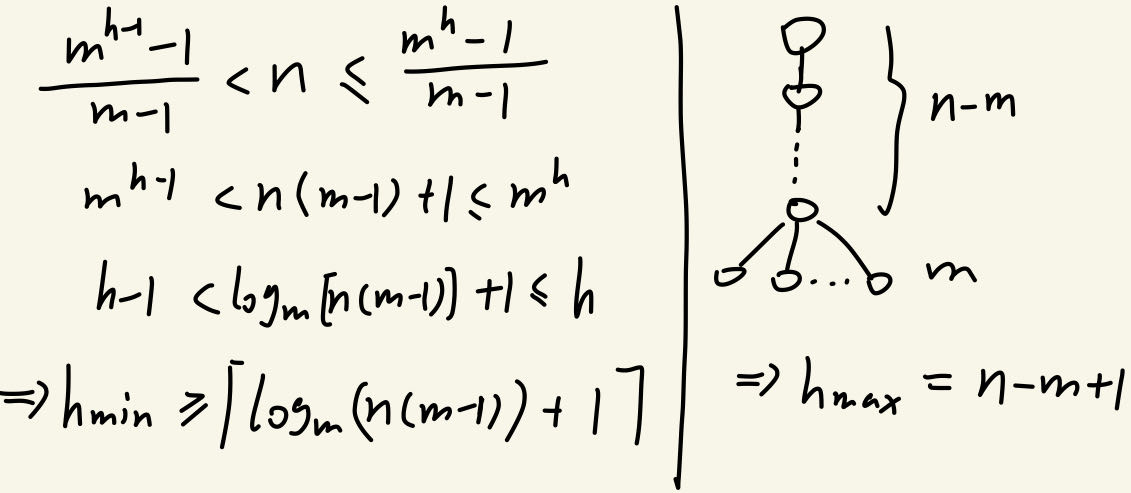 \frac{m^{h-1}-1}{m-1} < n ≤ \frac{m^h-1}{m-1}
m^{h-1} < n(m-1)+1 ≤ m^h
h-1 < log_m[n(m-1)]+1 ≤ h
⇒ h_{min} ≥ ⌈log_m(n(m-1))+1⌉
n-m
m
⇒ h_{max} = n-m+1